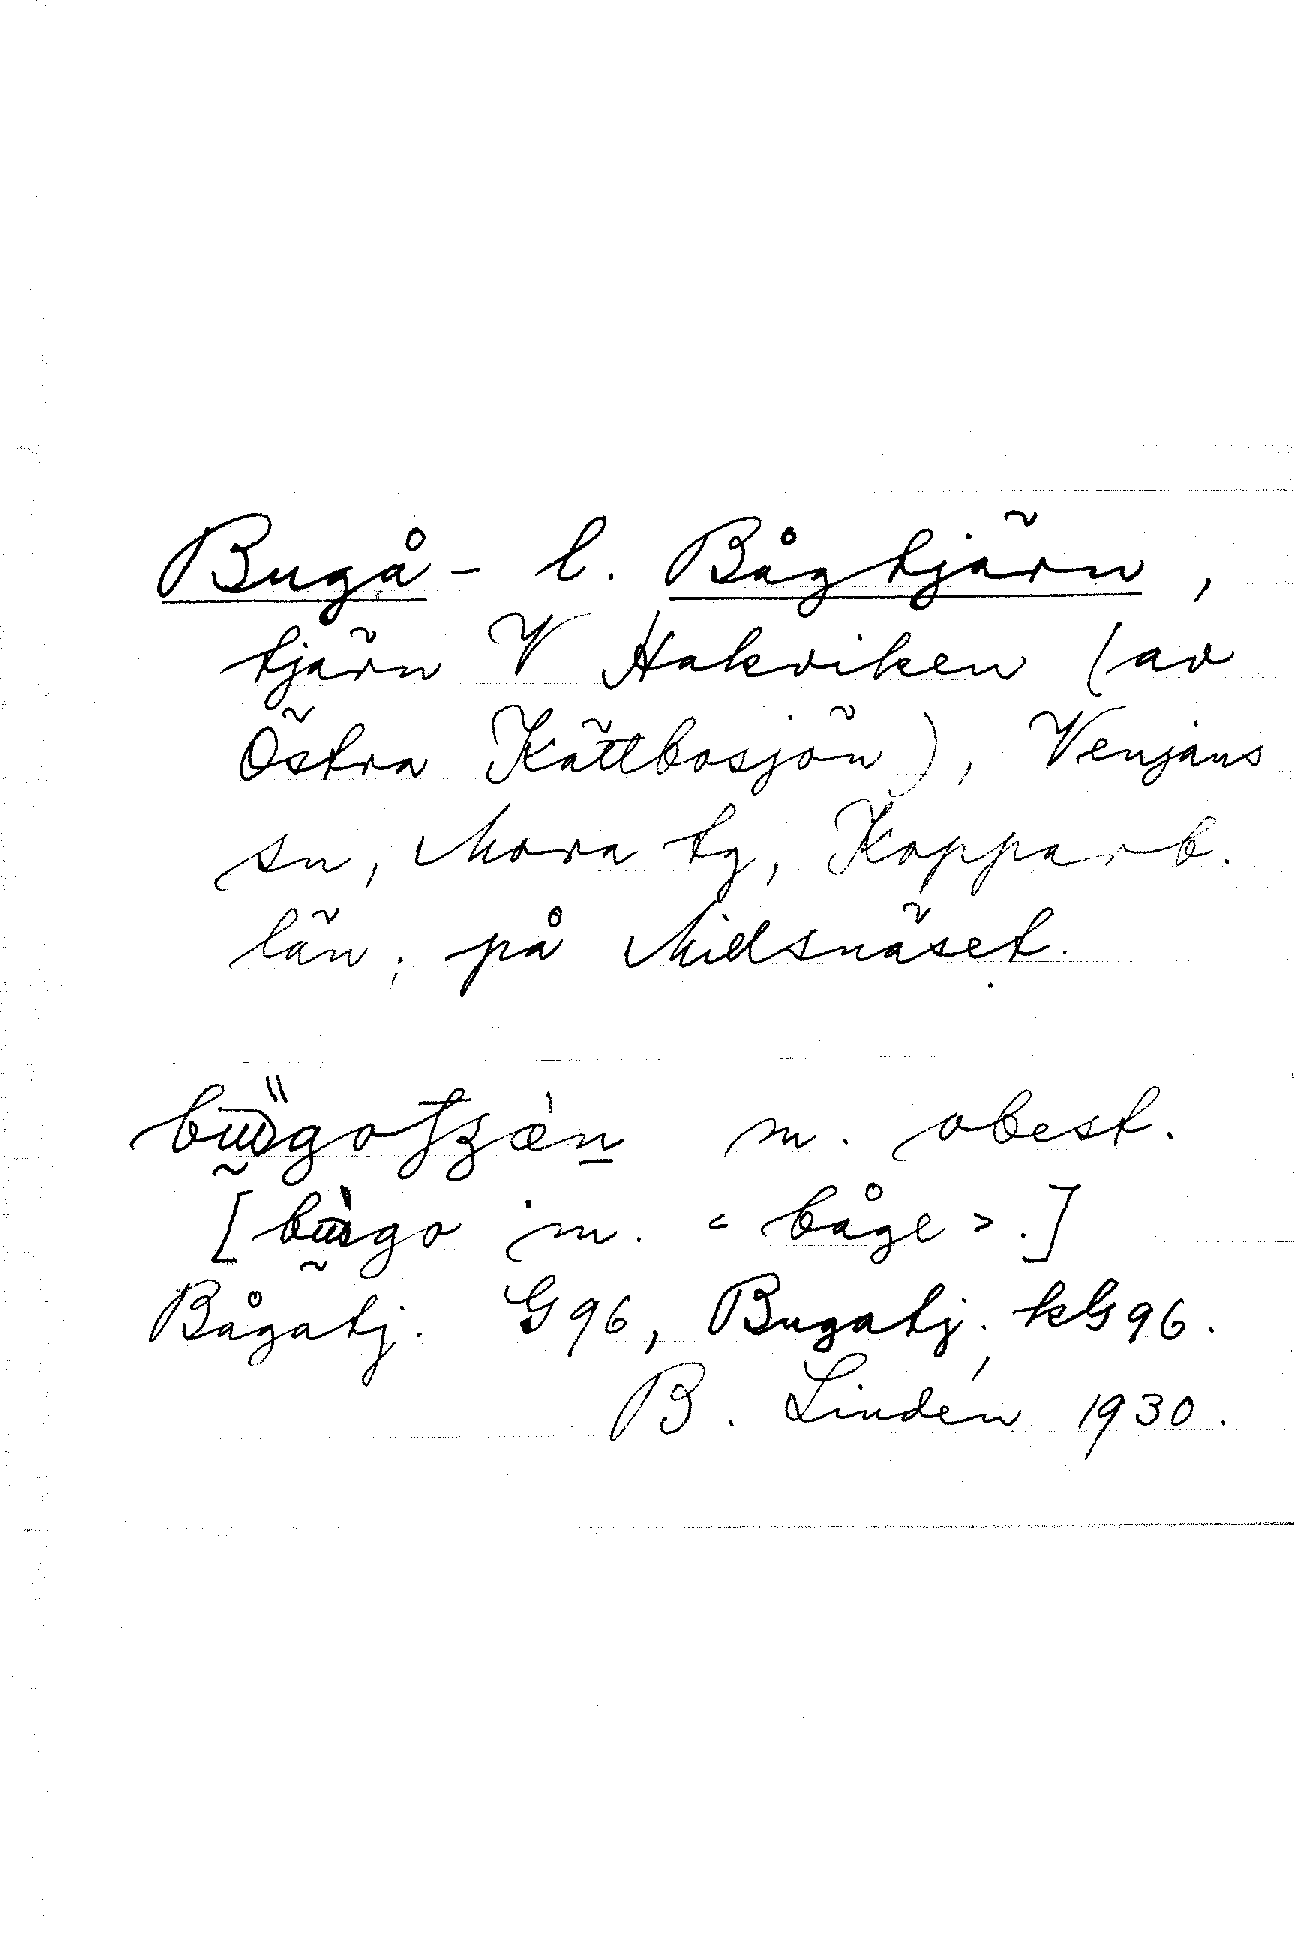 Bugå- l. Bågtjärn,
tjärn V Hakviken (av
Östra Kättbosjön), Venjans
sn, Mora tg, Kopparb.
län; på Midsnäset.
m. obest.
[ m. < båge >.]
Bågatj. G96, Bugatj. kG96.
B. Lindén 1930.